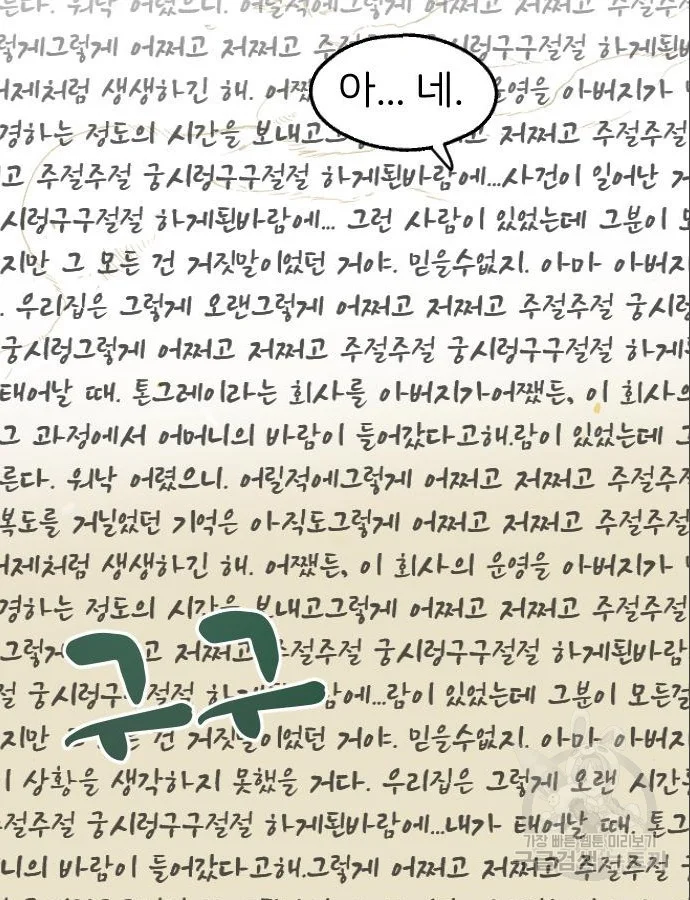 른다. 워낙 어렸으니. 어릴적에그렇게 어쩌고 저쩌고 주절주절
렇게그렇게 어쩌고 저쩌고 주 시렁구구절절 하게된바
어제처럼 생생하긴 해. 어쨌 운영을 아버지가
아... 네.
경하는 정도의 시간을 보내고그 고 저쩌고 주절주절
고 주절주절 궁시렁구구절절 하게된바람에...사건이 일어난
시렁구구절절 하게된바람에... 그런 사람이 있었는데 그분이 모
지만 그 모든 건 거짓말이었던 거야. 믿을수없지. 아마 아버지
. 우리집은 그렇게 오랜그렇게 어쩌고 저쩌고 주절주절 궁시
궁시렁그렇게 어쩌고 저쩌고 주절주절 궁시렁구구절절 하게
태어날 때. 톤그레이라는 회사를 아버지가어쨌든, 이 회사의
그 과정에서 어머니의 바람이 들어갔다고해.람이 있었는데 그
른다. 워낙 어렸으니. 어릴적에그렇게 어쩌고 저쩌고 주절주
복도를 거닐었던 기억은 아직도그렇게 어쩌고 저쩌고 주절주절
어제처럼 생생하긴 해. 어쨌든, 이 회사의 운영을 아버지가
경하는 정도의 시간을 보내고그렇게 어쩌고 저쩌고 주절주절
그렇게 고 저쩌고 주절주절 궁시렁구구절절 하게된바람
구구
절 궁시렁구구절절 하게 람에...람이 있었는데 그분이 모든걸
지만 그 모든 건 거짓말이었던 거야. 믿을수없지. 아마 아버지
이 상황을 생각하지 못했을 거다. 우리집은 그렇게 오랜 시간
절주절 궁시렁구구절절 하게된바람에...내가 태어날 때. 톤그
가장 빠른 웹툰 미리보기
니의 바람이 들어갔다고해.그렇게 어쩌고 저쩌고 주절주절